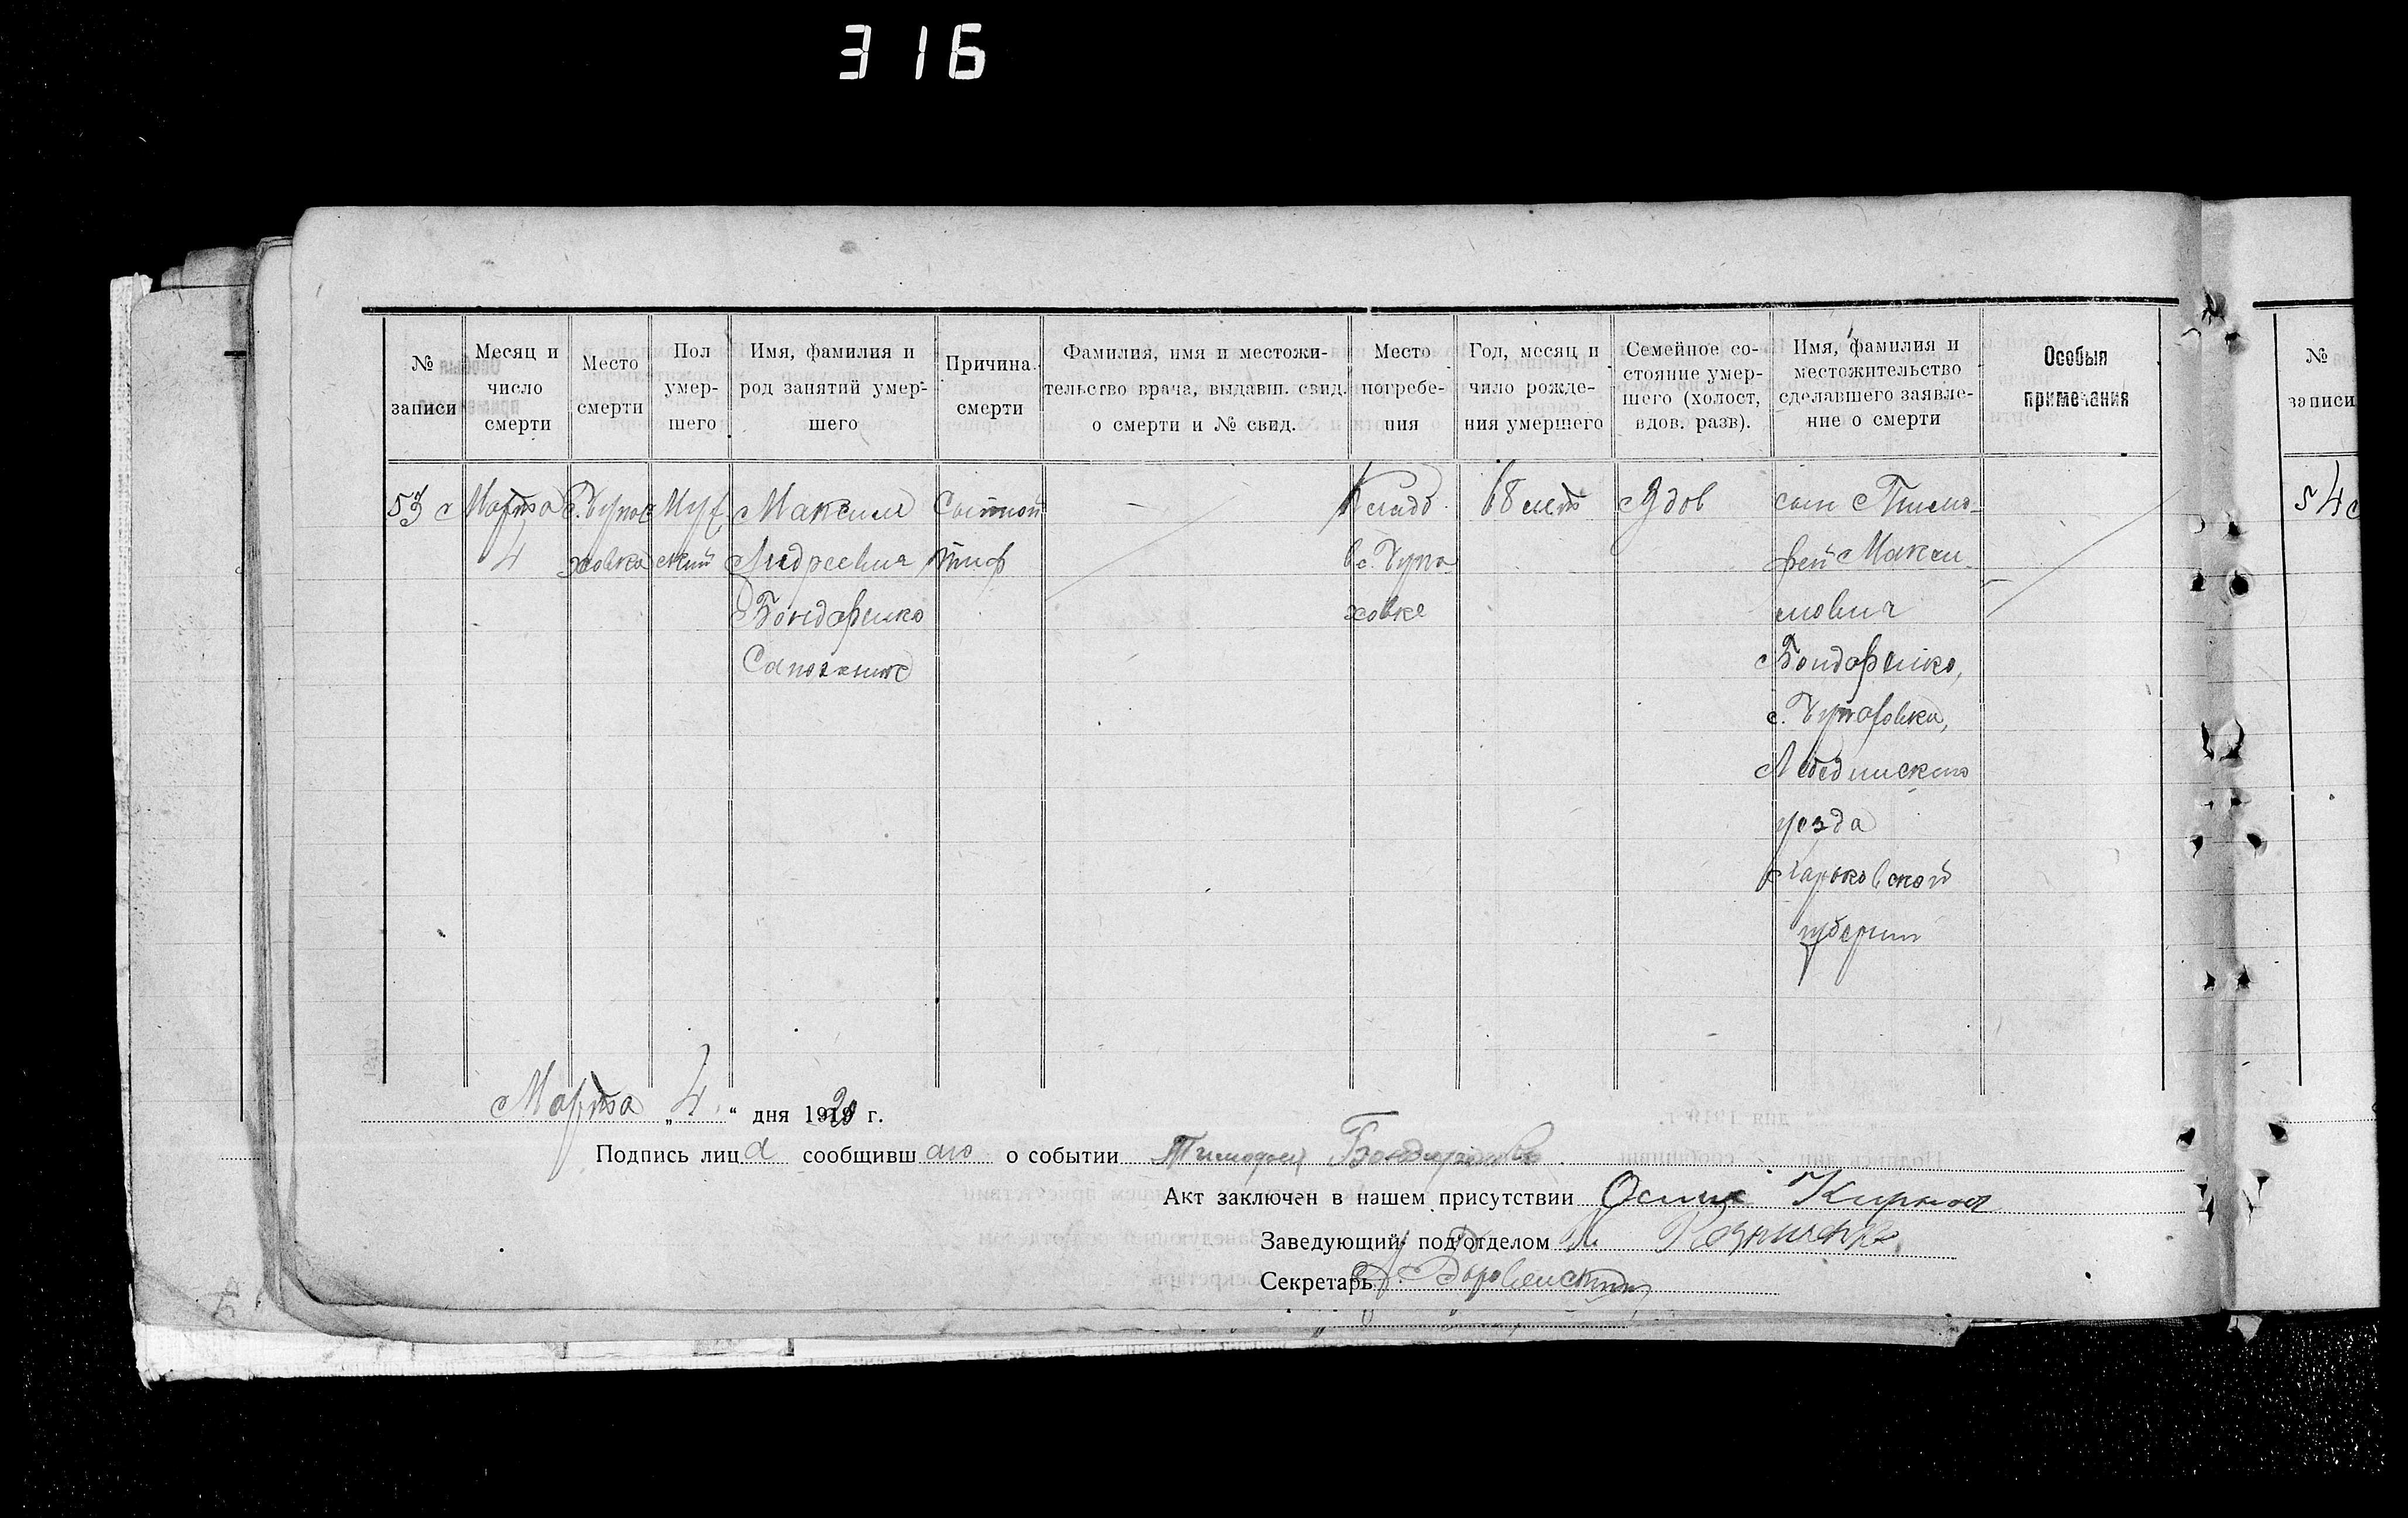 316
№ записи
Месяц и число смерти
Место смерти
Пол умер-шего
Имя, фамилия и род занятий умер-шего
Причина смерти
Фамилия, имя и местожи-тельство врача, выдавш. свид. о смерти и № свид.
Место погребе-ния
Год, месяц и число рожде-ния умершего
Семейное со-стояние умер-шего (холост, вдов. разв).
Имя, фамилия и местожительство сделавшего заявле-ние о смерти
Особыя примечания
№ записи
53
Марта
4
с. Чупа
ховка
Муж
ский
Максим
Андреевич
Бондаренко
Сапожник
Сыпной
тиф
—
Кладб.
в с. Чупа
ховке
68 лет
Вдов
сын Тимо-
фей Макси-
мович
Бондаренко,
с. Чупаховка,
Лебединского
уезда
Харьковской
губернии
54
Марта „ 4 “ дня 1920 г.
Подпись лица сообщившаго о событии Тимофей Бондаренко
Акт заключен в нашем присутствии Осип
Заведующий под'отделом
Секретарь